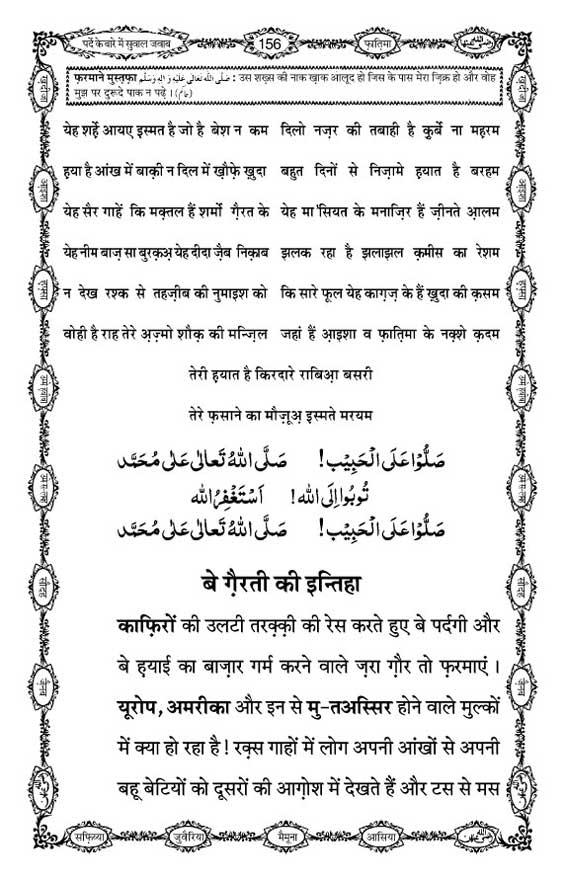 पर्दे के बारे में सुवाल जवाब
156
फ़ातिमा
फ़रमाने मुस्तफ़ा صَلَّى اللهُ تَعَالٰى عَلَيْهِ وَاٰلِهٖ وَسَلَّم : उस शख़्स की नाक ख़ाक आलूद हो जिस के पास मेरा ज़िक्र हो और वोह
मुझ पर दुरूदे पाक न पढ़े । (حاكم)
येह शर्हे आयए इस्मत है जो है बेश न कम दिलो नज़र की तबाही है कुर्बे ना महरम
हया है आंख में बाक़ी न दिल में ख़ौफ़े ख़ुदा बहुत दिनों से निज़ामे हयात है बरहम
येह सैर गाहें कि मक़्तल हैं शर्मो ग़ैरत के येह मा'सियत के मनाज़िर हैं ज़ीनते आलम
येह नीम बाज़ सा बुरक़अ येह दीदा ज़ैब निक़ाब झलक रहा है झलाझल क़मीस का रेशम
न देख रश्क से तहज़ीब की नुमाइश को कि सारे फूल येह काग़ज़ के हैं ख़ुदा की क़सम
वोही है राह तेरे अज़्मो शौक़ की मन्ज़िल जहां हैं आइशा व फ़ातिमा के नक़्शे क़दम
तेरी हयात है किरदारे राबिआ बसरी
तेरे फ़साने का मौज़ूअ इस्मते मरयम
صَلُّوْا عَلَى الْحَبِيْب! صَلَّى اللهُ تَعَالٰى عَلٰى مُحَمَّد
تُوْبُوْا اِلَى الله! اَسْتَغْفِرُ الله
صَلُّوْا عَلَى الْحَبِيْب! صَلَّى اللهُ تَعَالٰى عَلٰى مُحَمَّد
बे ग़ैरती की इन्तिहा
काफ़िरों की उलटी तरक़्क़ी की रेस करते हुए बे पर्दगी और
बे हयाई का बाज़ार गर्म करने वाले ज़रा ग़ौर तो फ़रमाएं ।
यूरोप, अमरीका और इन से मु-तअस्सिर होने वाले मुल्कों
में क्या हो रहा है ! रक़्स गाहों में लोग अपनी आंखों से अपनी
बहू बेटियों को दूसरों की आग़ोश में देखते हैं और टस से मस
सफ़िय्या
जुवैरिया
मैमूना
आसिया